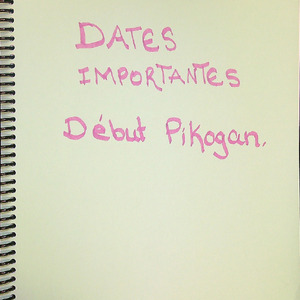 DATES
IMPORTANTES
Début Pikogan.